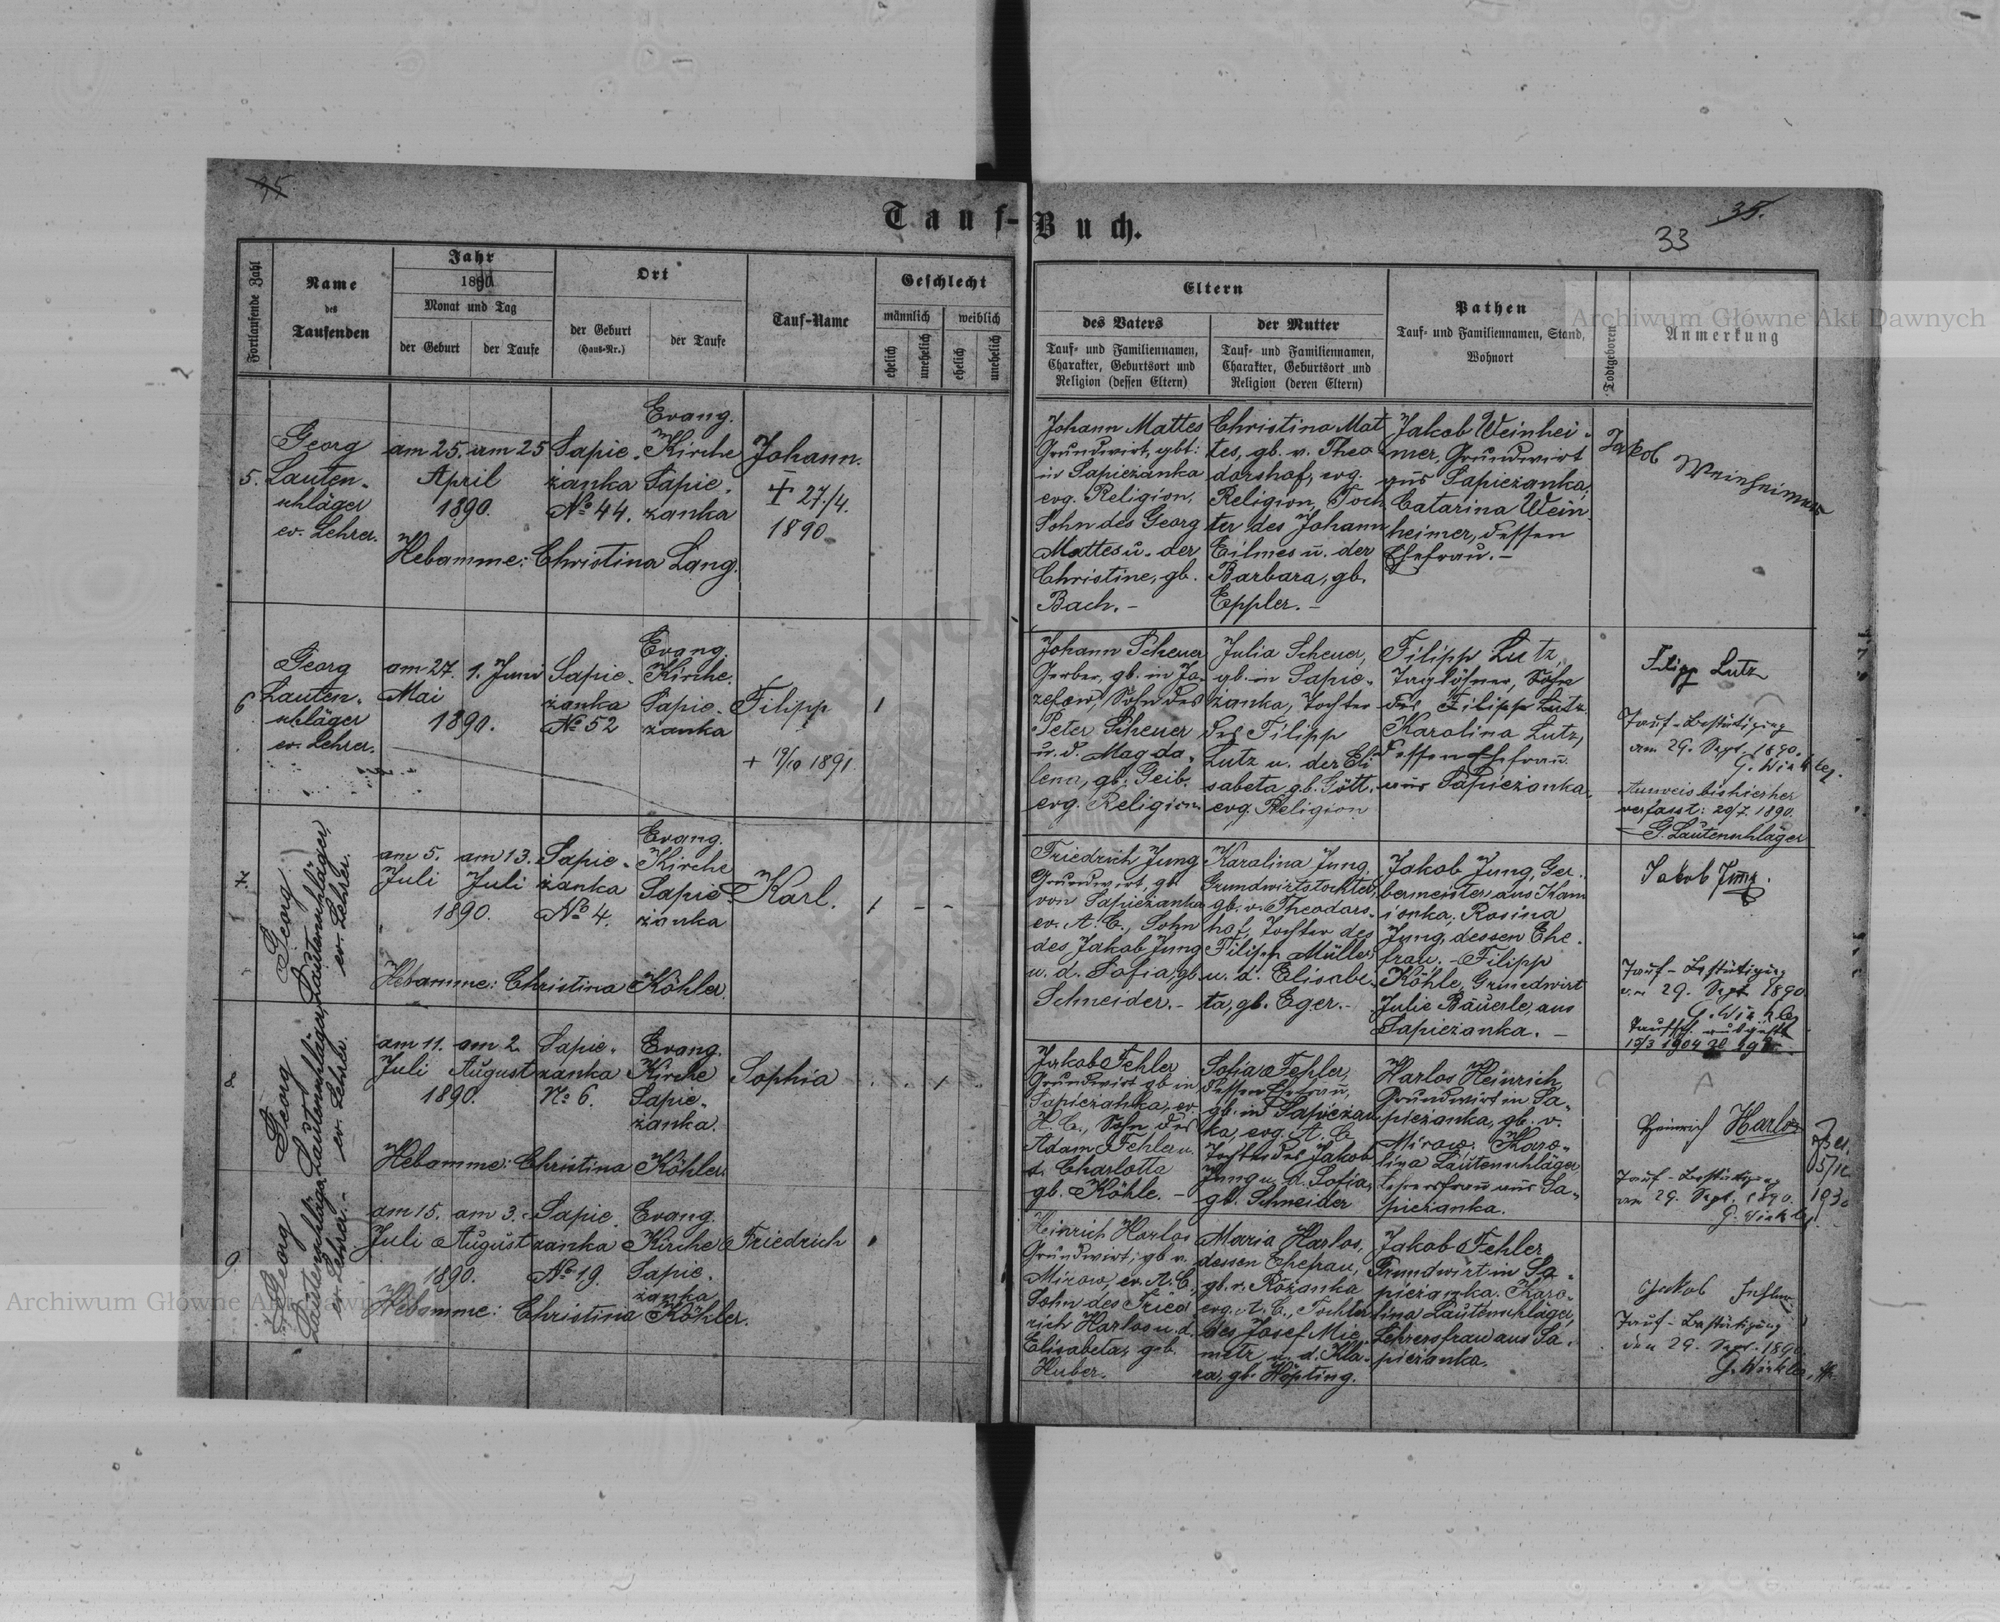 35
Tauf-Buch.
35.
33
Fortlaufende Zahl
Name
des
Taufenden
Jahr
1890
Monat und Tag
der Geburt
der Taufe
Ort
der Geburt
(Haus-Nr.)
der Taufe
Tauf-Name
Geschlecht
männlich
weiblich
ehelich
unehelich
ehelich
unehelich
Eltern
des Vaters
Tauf- und Familiennamen,
Charakter, Geburtsort und
Religion (dessen Eltern)
der Mutter
Tauf- und Familiennamen,
Charakter, Geburtsort und
Religion (deren Eltern)
Pathen
Tauf- und Familiennamen, Stand,
Wohnort
Todtgeboren
Anmerkung
5.
Georg
Lauten-
schläger
ev. Lehrer.
am 25.
April
1890.
am 25
Sapie-
żanka
No 44.
Evang.
Kirche
Sapie-
żanka
Johann.
+ 27/4.
1890
Hebamme: Christina Lang.
Johann Mattes
Grundwirt, gbt:
in Sapieżanka
evg. Religion,
Sohn des Georg
Mattes u. der
Christine, gb.
Bach. -
Christina Mat
tes, gb. v. Theo
dorshof, evg.
Religion, Toch
ter des Johann
Eilmes u. der
Barbara, gb.
Eppler. -
Jakob Weinhei-
mer, Grundwirt
aus Sapieżanka,
Catarina Wein-
heimer, dessen
Ehefrau. -
Jakob Weinheimer
6
Georg
Lauten-
schläger
ev. Lehrer.
am 27.
Mai
1890.
1. Juni
Sapie-
żanka
No 52
Evang.
Kirche.
Sapie-
żanka
Filipp
+ 9/10 1891.
Johann Scheuer
Gerber, gb. in Jó
zefów, Sohn des
Peter Scheuer
u. d. Magda-
lena, gb. Geib.
evg. Religion
Julia Scheuer,
gb. in Sapie-
żanka, Tochter
des Filipp
Lutz u. der Eli
sabeta gb. Gött.
evg. Religion
Filipp Lutz,
Taglöhner, Sohn
des Filipp Lutz.
Karolina Lutz,
dessen Ehefrau
aus Sapieżanka.
Filipp Lutz
Tauf-Bestätigung
am 29. Sept. 1890.
G. Winkler.
Ausweis bis hierher
verfasst: 20/7. 1890.
G. Lautenschläger
7.
Georg
Lautenschläger,
ev. Lehrer.
am 5.
Juli
1890.
am 13.
Juli
Sapie-
żanka
No 4.
Evang.
Kirche
Sapie-
żanka
Karl.
Hebamme: Christina Köhler.
Friedrich Jung
Grundwirt, gb
von Sapieżanka
ev. A. C., Sohn
des Jakob Jung
u. d. Sofia, gb.
Schneider. -
Karalina Jung,
Grundwirtstochter,
gb. v. Theodors-
hof, Tochter des
Filipp Müller
u. d. Elisabe-
ta, gb. Eger. -
Jakob Jung, Ger-
bermeister aus Kam
ionka, Rosina
Jung, dessen Ehe-
frau. - Filipp
Köhle, Grundwirt
Julie Bäuerle, aus
Sapieżanka. -
Jakob Jung.
Tauf-Bestätigung
29. Sept 1890
8
Georg
Lautenschläger,
ev. Lehrer.
am 11.
Juli
1890.
am 2
August
Sapie-
żanka
No 6.
Evang.
Kirche
Sapie-
żanka.
Sophia
Hebamme: Christina Köhler
Jakob Fehler
Grundwirt gb in
Sapieżanka, ev.
H. C., Sohn des
Adam Fehler u.
d. Charlotta
gb. Köhle. -
Sofia Fehler,
dessen Ehefrau,
gb. in Sapieżan
ka, evg. A. C.
Tochter des Jakob
Jung u. d. Sofia,
gb. Schneider
Harlos Heinrich,
Grundwirt in Sa-
pieżanka, gb. v.
Mirow. Karo-
lina Lautenschläger
Lehrersfrau aus Sa-
pieżanka.
Heinrich Harlos
Tauf-Bestätigung
am 29. Sept. 1890.
G. Winkler.
9.
Georg
Lautenschläger
ev. Lehrer. -
am 15.
Juli
1890.
am 3.
August
Sapie.
żanka
No 19.
Evang.
Kirche
Sapie.
żanka
Friedrich
Hebamme: Christina Köhler.
Heinrich Harlos
Grundwirt, gb v.
Mirow, ev. A. C.,
Sohn des Fried
rich Harlos u. d.
Elisabeta, geb.
Huber.
Maria Harlos,
dessen Ehefrau,
gb. v. Rożanka
evg. A. C., Tochter
des Josef Mie-
metz u. d. Kla-
ra, gb. Höpting.
Jakob Fehler
Grundwirt in Sa-
pieżanka. Karo-
lina Lautenschläger,
Lehrersfrau aus Sa-
pieżanka.
Jakob Fehler
Tauf-Bestätigung
den 29. Sept. 1890.
G. Winkler
Archiwum Główne Akt Dawnych
Archiwum Główne Akt Dawnych